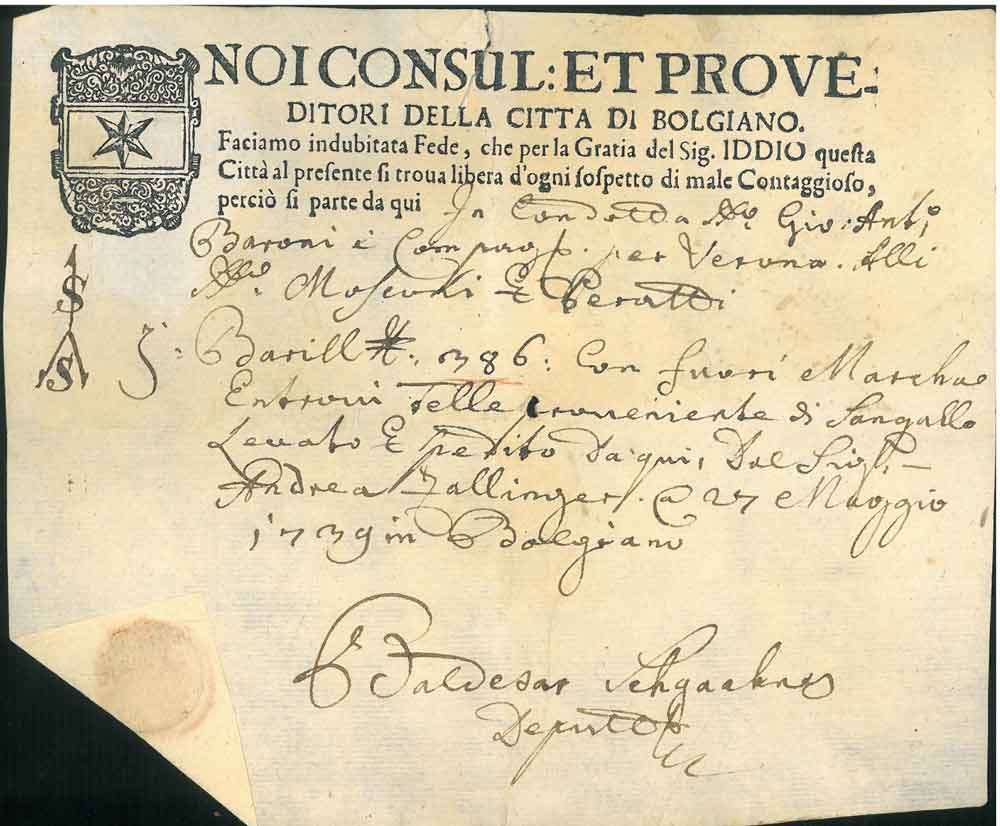 NOI CONSUL: ET PROVE-
DITORI DELLA CITTA DI BOLGIANO.
Faciamo indubitata Fede, che per la Gratia del Sig. IDDIO questa
Città al presente si troua libera d'ogni sospetto di male Contaggioso,
perciò si parte da qui In Condotta Gio: Ant:
Baroni è Comp per Verona. Alli
Mosconi & Peratti
S
S
3: Barill 386: Con fuori Marcha
Entroui Telle proueniente di Sangallo
Leuato & Spedito da qui, Dal Sig
Andrea Zallinger. a 27 Maggio
1739 in Bolgiano
Baldesar
Deputto